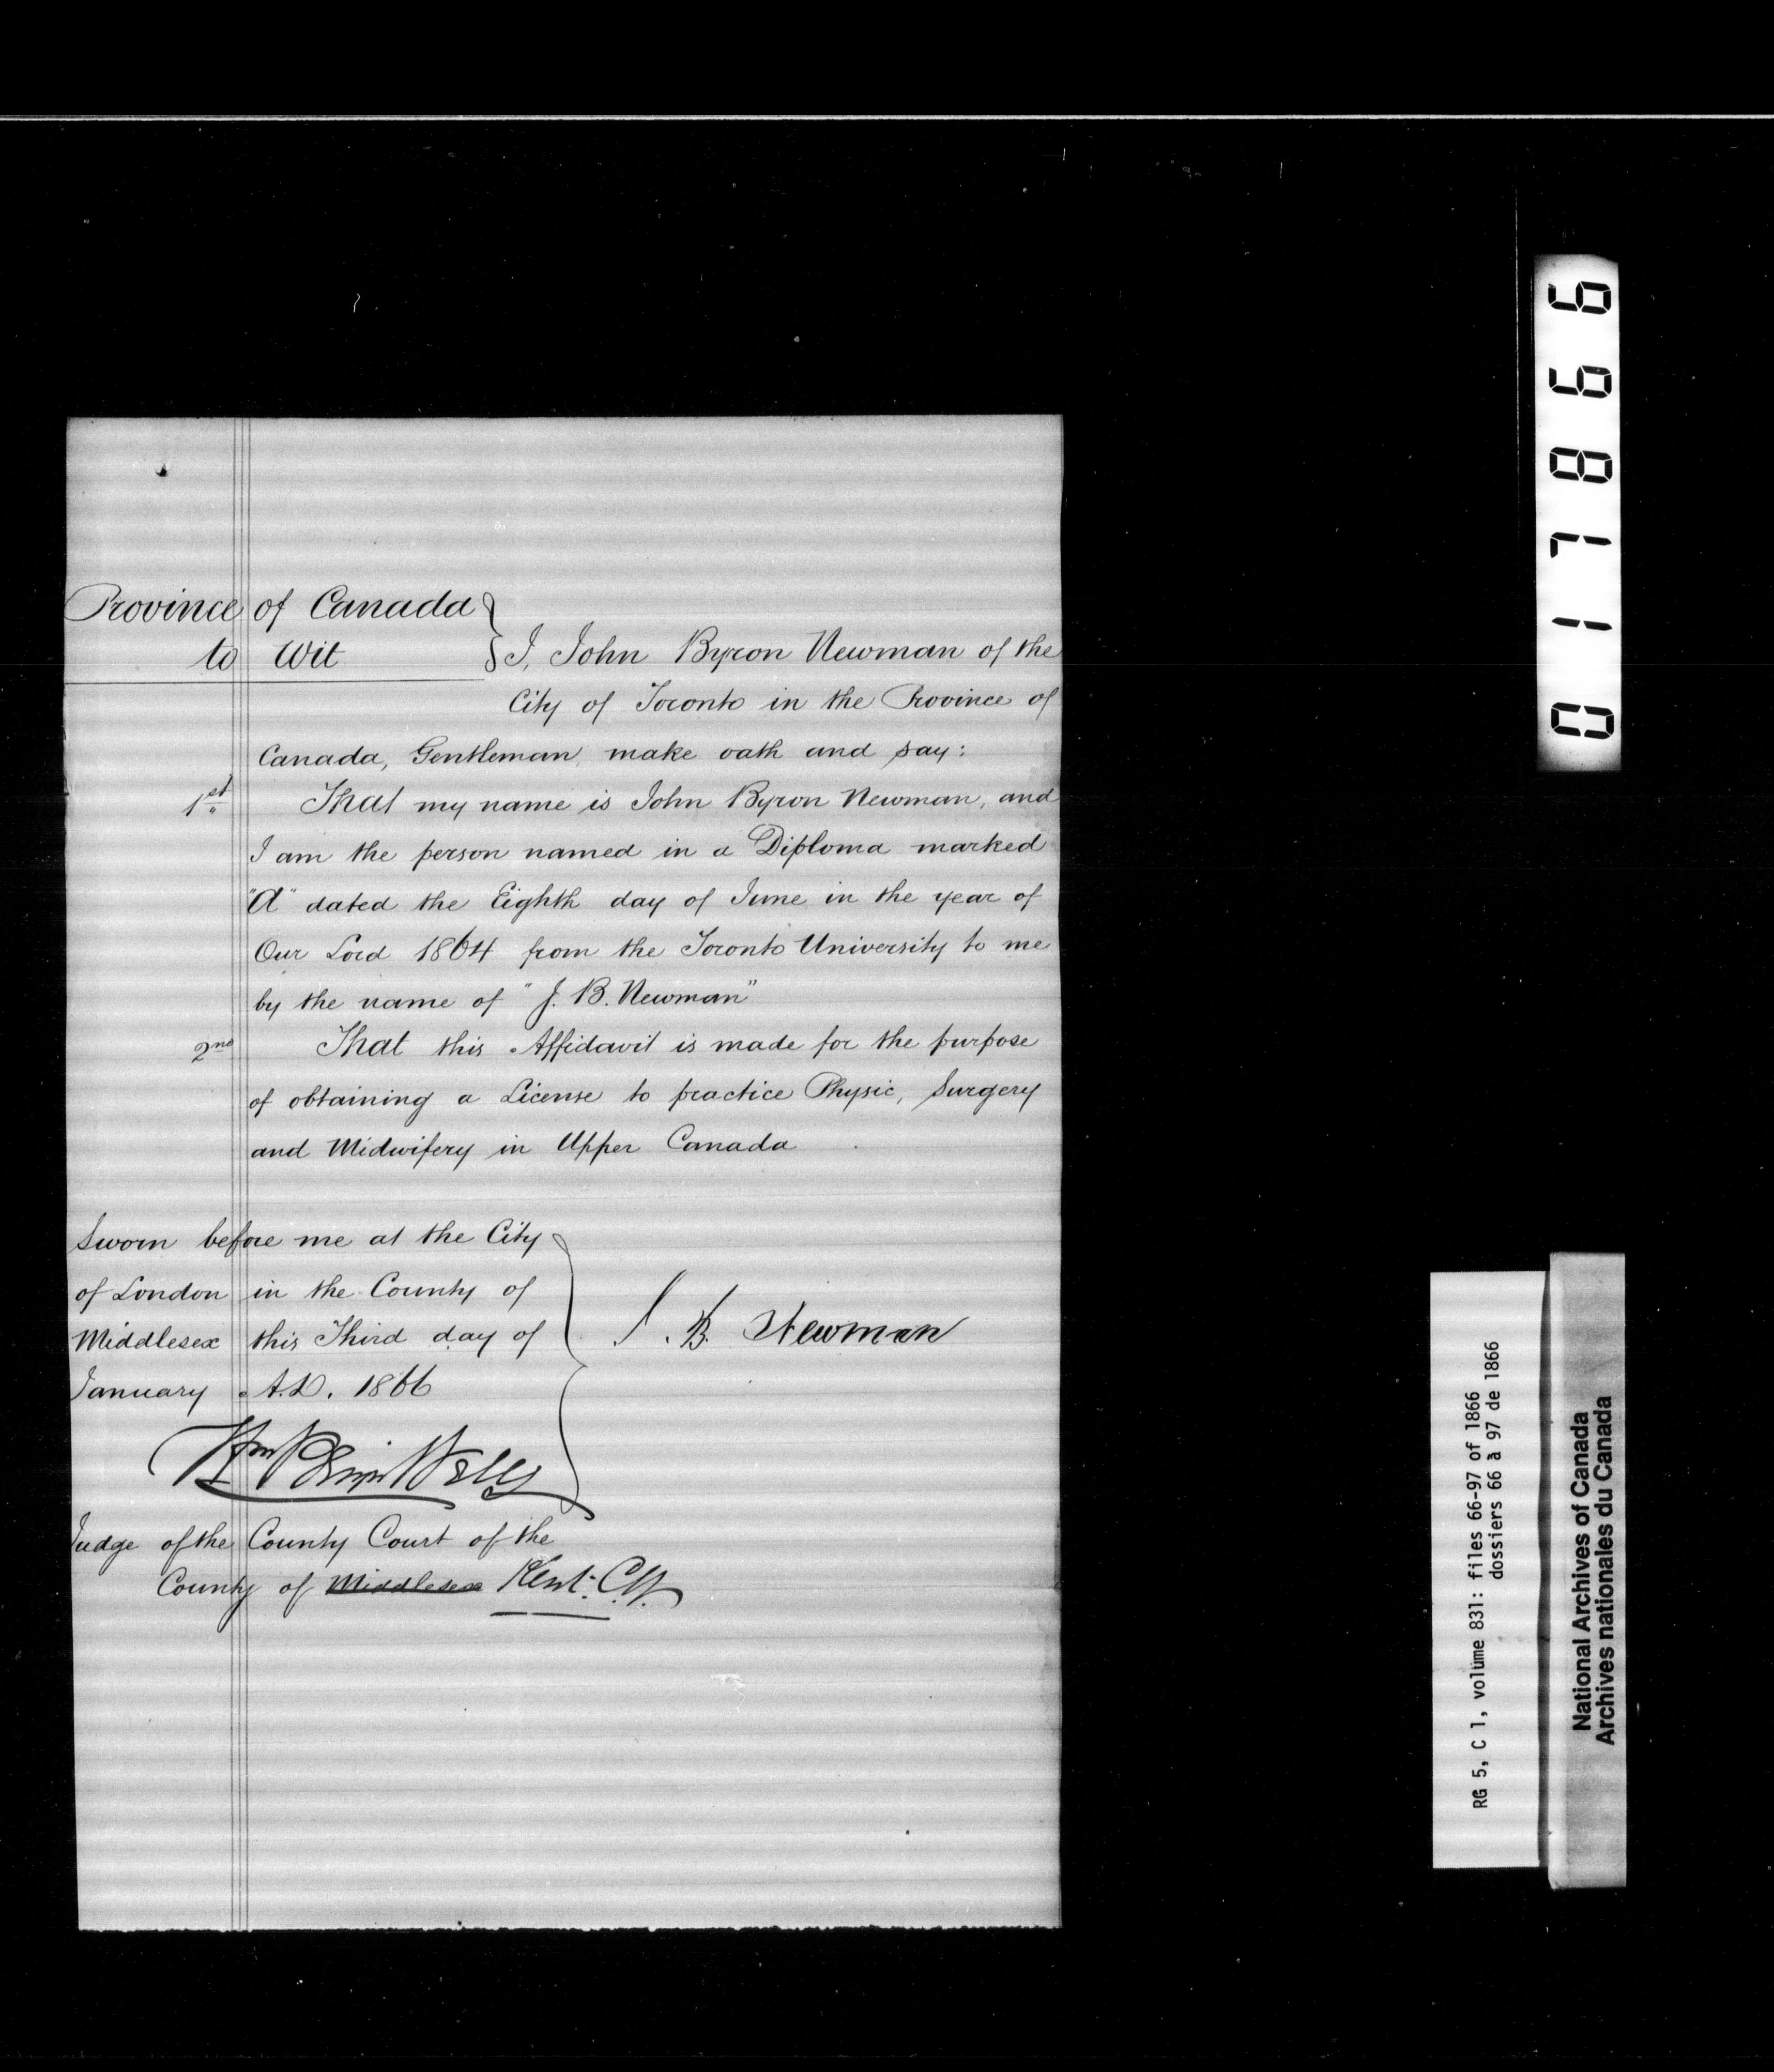 Province of Canada
to Wit
I, John Byron Newman of the
City of Toronto in the Province of
Canada, Gentleman, make oath and say:
1st That my name is John Byron Newman, and
I am the person named in a Diploma marked
"A" dated the Eighth day of June in the year of
Our Lord 1864 from the Toronto University to me
by the name of "J. B. Newman"
2nd That this Affidavit is made for the purpose
of obtaining a License to practice Physic, Surgery
and Midwifery in Upper Canada
Sworn before me at the City
of London in the County of
Middlesex this Third day of
January A.D. 1866
J. B. Newman
Wm Wells
Judge of the County Court of the
County of Middlesex Kent. C.W.
017866
RG 5, C 1, volume 831: files 66-97 of 1866
dossiers 66 à 97 de 1866
National Archives of Canada
Archives nationales du Canada